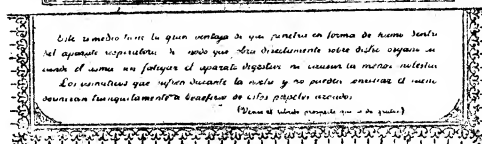 Este remedio tiene la gran ventaja de que penetra en forma de humo dentro
del aparato respiratorio de modo que obra directamente sobre dicho organo
sin fatigar el aparato digestivo ni causar la menor molestia
Los asmaticos que sufren durante la noche y no pueden conciliar el sueño
duermen tranquilamente a beneficio de estos papeles azoados
(Vease el prospecto que se da gratis)